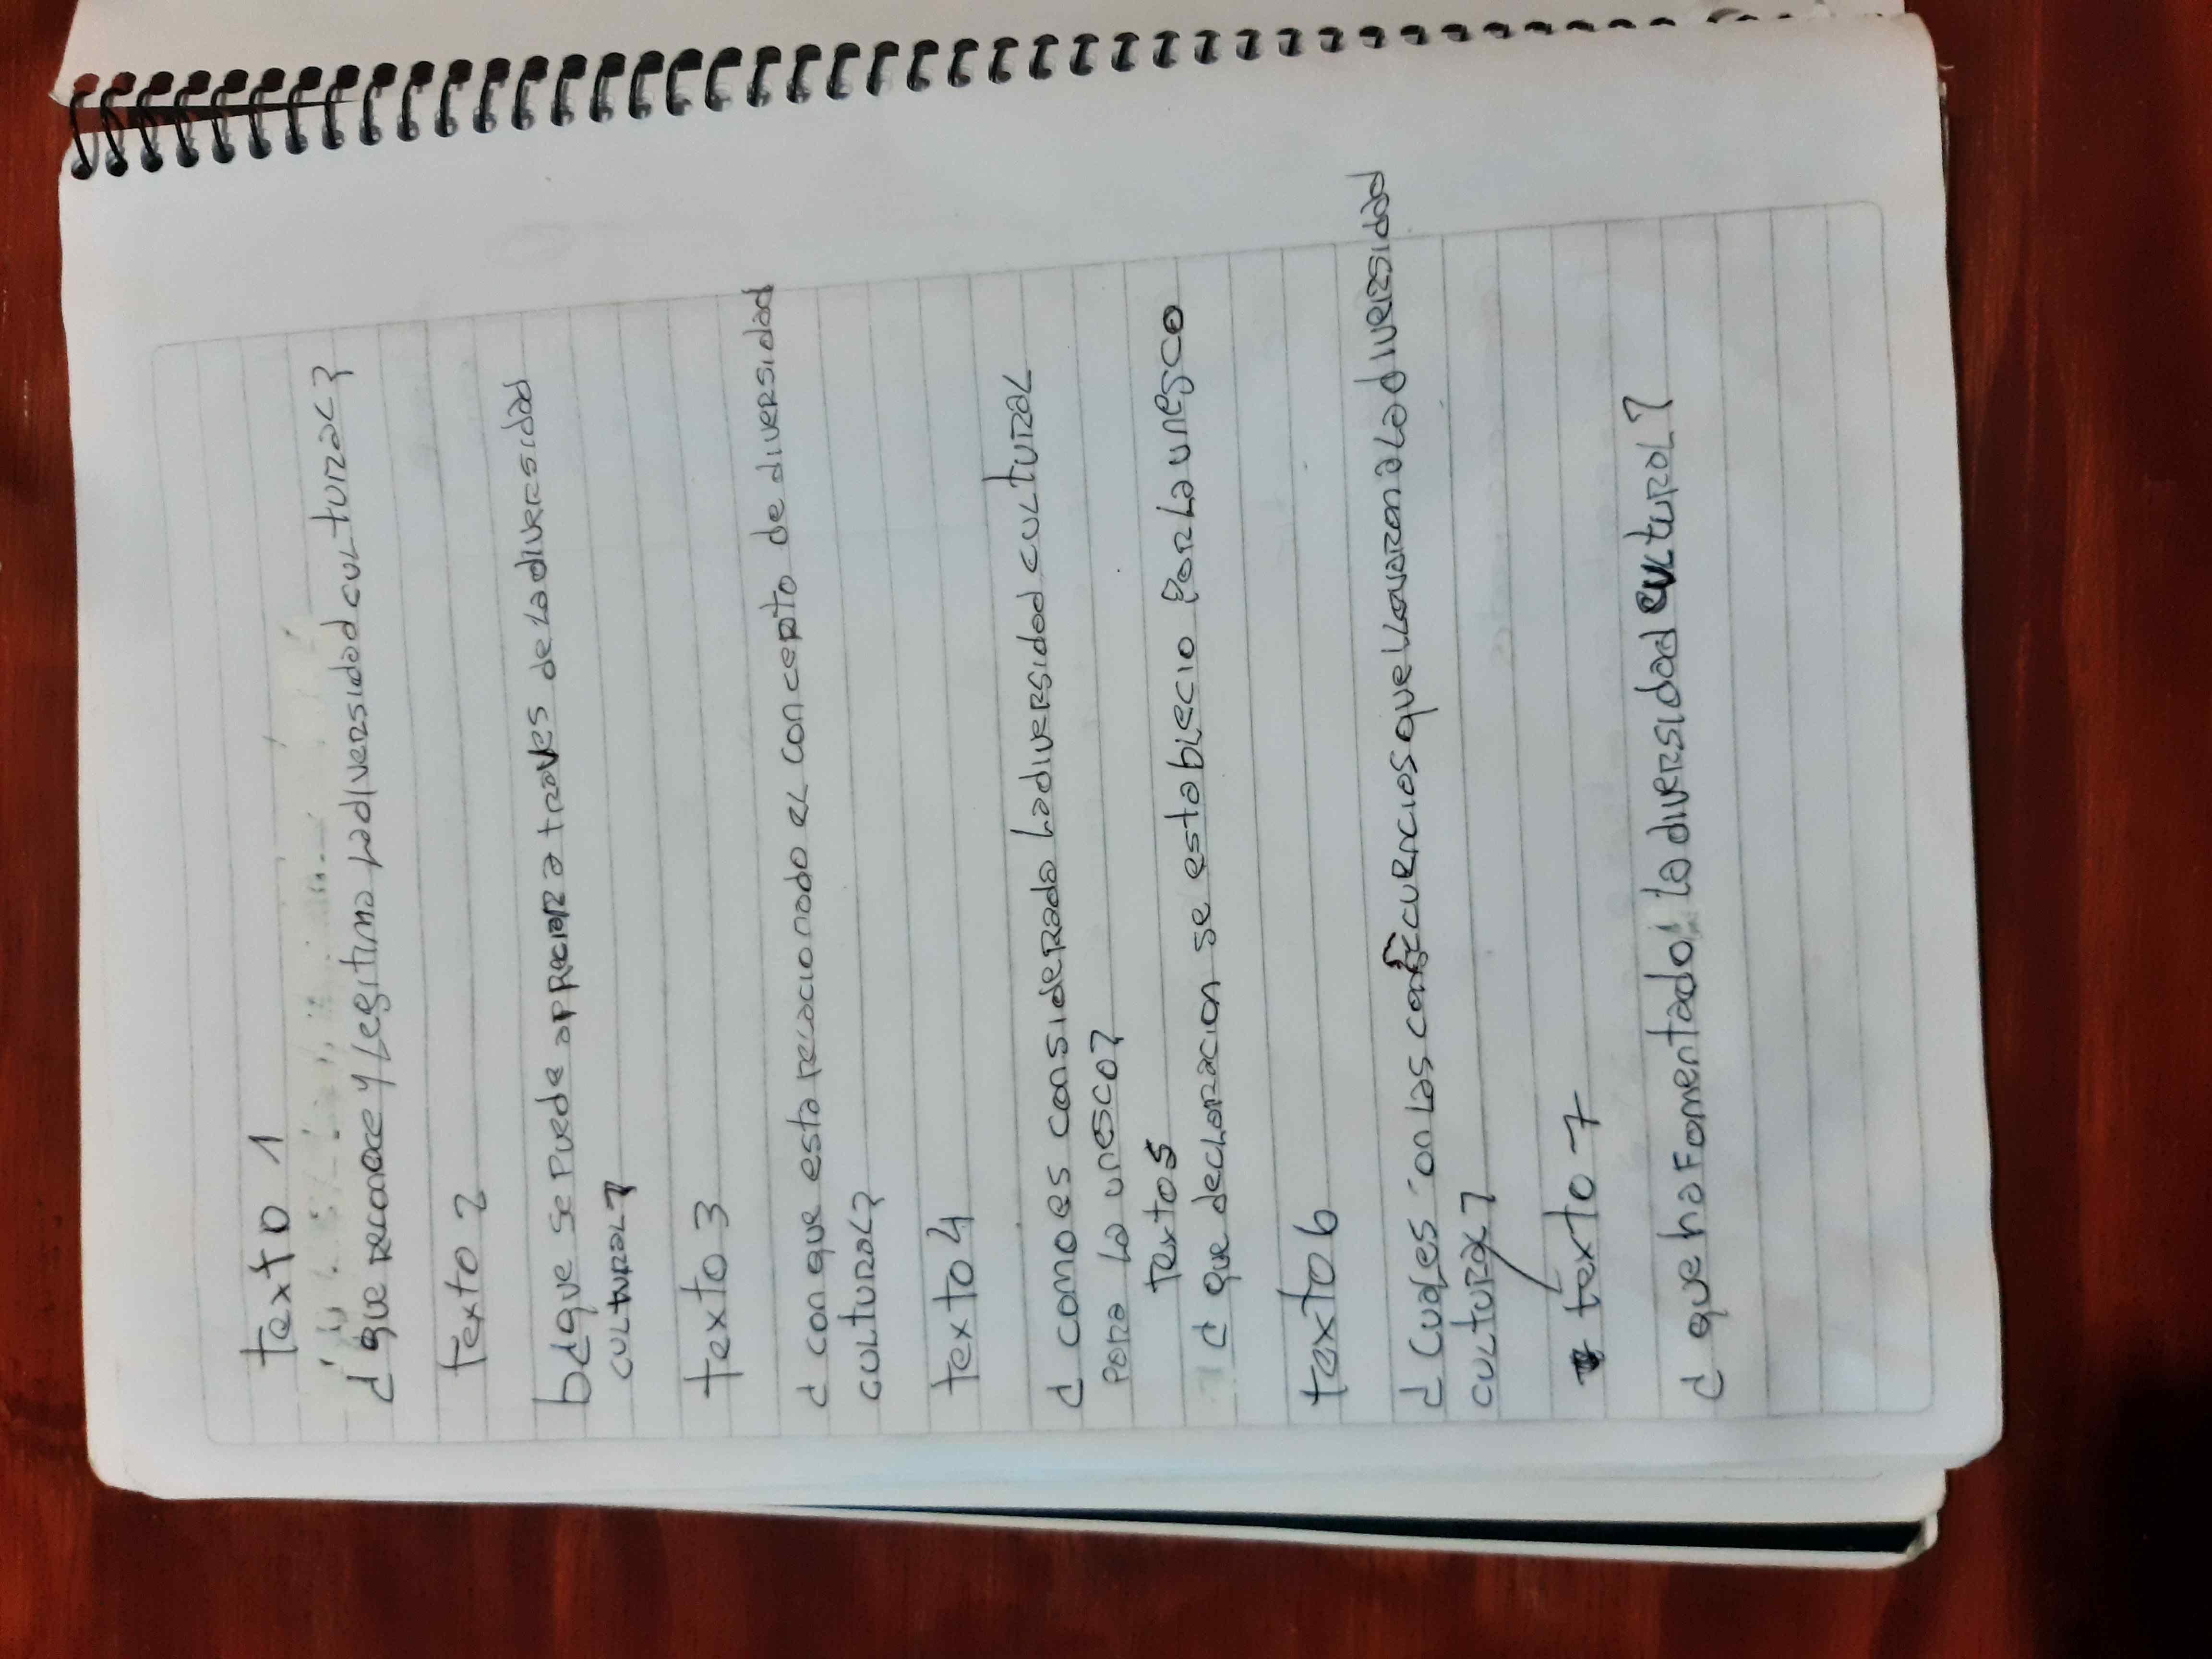 texto 1
¿ que reconoce y legitima la diversidad cultural?
texto 2
b¿que se puede apreciar a traves de la diversidad
cultural?
texto 3
¿ con que esta relacionado el concepto de diversidad
cultural?
texto 4
¿ como es considerada la diversidad cultural
para la unesco?
texto 5
¿ que declaracion se establecio por la unesco
texto 6
¿ Cuales on las consecuencias que llavaron a la diversidad
cultural?
texto 7
¿ que ha fomentado la diversidad cultural?